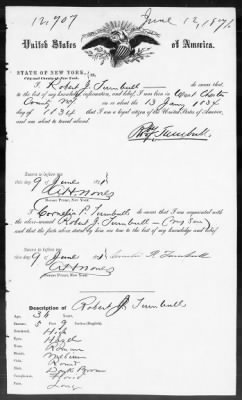 12,707 June 12, 1871
United States of America.
STATE OF NEW YORK, } ss.
City and County of New York.
I Robert J. Turnbull do swear that,
to the best of my knowledge, information, and belief, I was born in West Chester
County NY on or about the 13 Jany 1834
day of 1834 that I am a legal citizen of the United States of America,
and am about to travel abroad.
Turnbull
Sworn to before me
this 9 June
Notary Public, New York.
I Cornelia P. Turnbull do swear that I am acquainted with
the above-named Robert J. Turnbull (my Son)
and that the facts above stated by him are true to the best of my knowledge and belief
Sworn to before me
this 9 of June
Turnbull
Notary Public, New York.
Description of Robert J. Turnbull
Age, 36 Years
Stature, 5 9 (English).
Forehead, High
Eyes, Hazel
Nose, Roman
Mouth, Medium
Chin, Round
Hair, Dark Brown
Complexion,
Face, Long